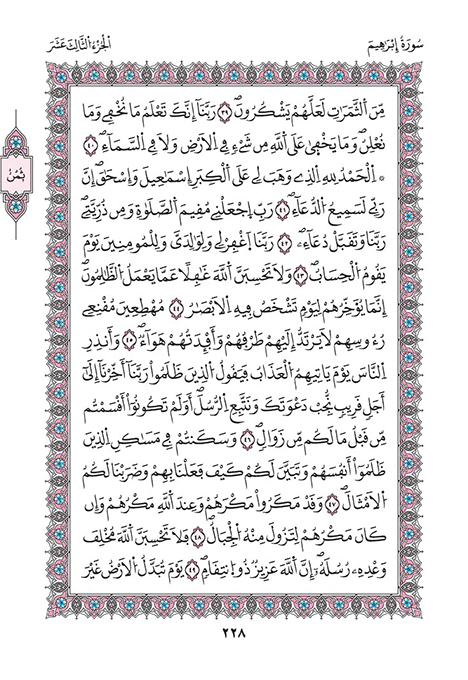 سُورَةُ إِبْرَاهِيمَ
اَلْجُزْءُ الثَّالِثَ عَشَرَ
مِّنَ اَ۬لثَّمَرَٰتِ لَعَلَّهُمْ يَشْكُرُونَۖ ٣٩ رَبَّنَآ إِنَّكَ تَعْلَمُ مَا نُخْفِے وَمَا
نُعْلِنُۖ وَمَا يَخْف۪يٰ عَلَى اَ۬للَّهِ مِن شَےْءٖ فِے اِ۬لَارْضِ وَلَا فِے اِ۬لسَّمَآءِۖ ٤٠
۞ اَ۬لْحَمْدُ لِلهِ اِ۬لذِے وَهَبَ لِے عَلَى اَ۬لْكِبَرِ إِسْمَٰعِيلَ وَإِسْحَٰقَۖ إِنَّ
رَبِّے لَسَمِيعُ اُ۬لدُّعَآءِۖ ٤١ رَبِّ اِ۪جْعَلْنِے مُقِيمَ اَ۬لصَّلَوٰةِ وَمِن ذُرِّيَّتِےۖ
رَبَّنَا وَتَقَبَّلْ دُعَآءِۖ ٤٢ رَبَّنَا اَ۪غْفِرْ لِے وَلِوَٰلِدَيَّ وَلِلْمُومِنِينَ يَوْمَ
يَقُومُ اُ۬لْحِسَابُۖ ٤٣ وَلَا تَحْسِبَنَّ اَ۬للَّهَ غَٰفِلاً عَمَّا يَعْمَلُ اُ۬لظَّٰلِمُونَۖ
إِنَّمَا يُوَ۬خِّرُهُمْ لِيَوْمٖ تَشْخَصُ فِيهِ اِ۬لَابْصَٰرُ ٤٤ مُهْطِعِينَ مُقْنِعِے
رُءُوسِهِمْ لَا يَرْتَدُّ إِلَيْهِمْ طَرْفُهُمْ وَأَفْـِٕدَتُهُمْ هَوَآءٞۖ ٤٥ وَأَنذِرِ
اِ۬لنَّاسَ يَوْمَ يَاتِيهِمُ اُ۬لْعَذَابُ فَيَقُولُ اُ۬لذِينَ ظَلَمُواْ رَبَّنَآ أَخِّرْنَآ إِلَيٰٓ
أَجَلٖ قَرِيبٖ نُّجِبْ دَعْوَتَكَ وَنَتَّبِعِ اِ۬لرُّسُلَۖ أَوَلَمْ تَكُونُوٓاْ أَقْسَمْتُم
مِّن قَبْلُ مَا لَكُم مِّن زَوَالٖۖ ٤٦ وَسَكَنتُمْ فِے مَسَٰكِنِ اِ۬لذِينَ
ظَلَمُوٓاْ أَنفُسَهُمْ وَتَبَيَّنَ لَكُمْ كَيْفَ فَعَلْنَا بِهِمْ وَضَرَبْنَا لَكُمُ
اُ۬لَامْثَالَۖ ٤٧ وَقَدْ مَكَرُواْ مَكْرَهُمْ وَعِندَ اَ۬للَّهِ مَكْرُهُمْ وَإِن
كَانَ مَكْرُهُمْ لِتَزُولَ مِنْهُ اُ۬لْجِبَالُۖ ٤٨ فَلَا تَحْسِبَنَّ اَ۬للَّهَ مُخْلِفَ
وَعْدِهِۦ رُسُلَهُۥٓۖ إِنَّ اَ۬للَّهَ عَزِيزٞ ذُو اُ۪نتِقَامٖۖ ٤٩ يَوْمَ تُبَدَّلُ اُ۬لَارْضُ غَيْرَ
ثُمُنُ
٢٢٨